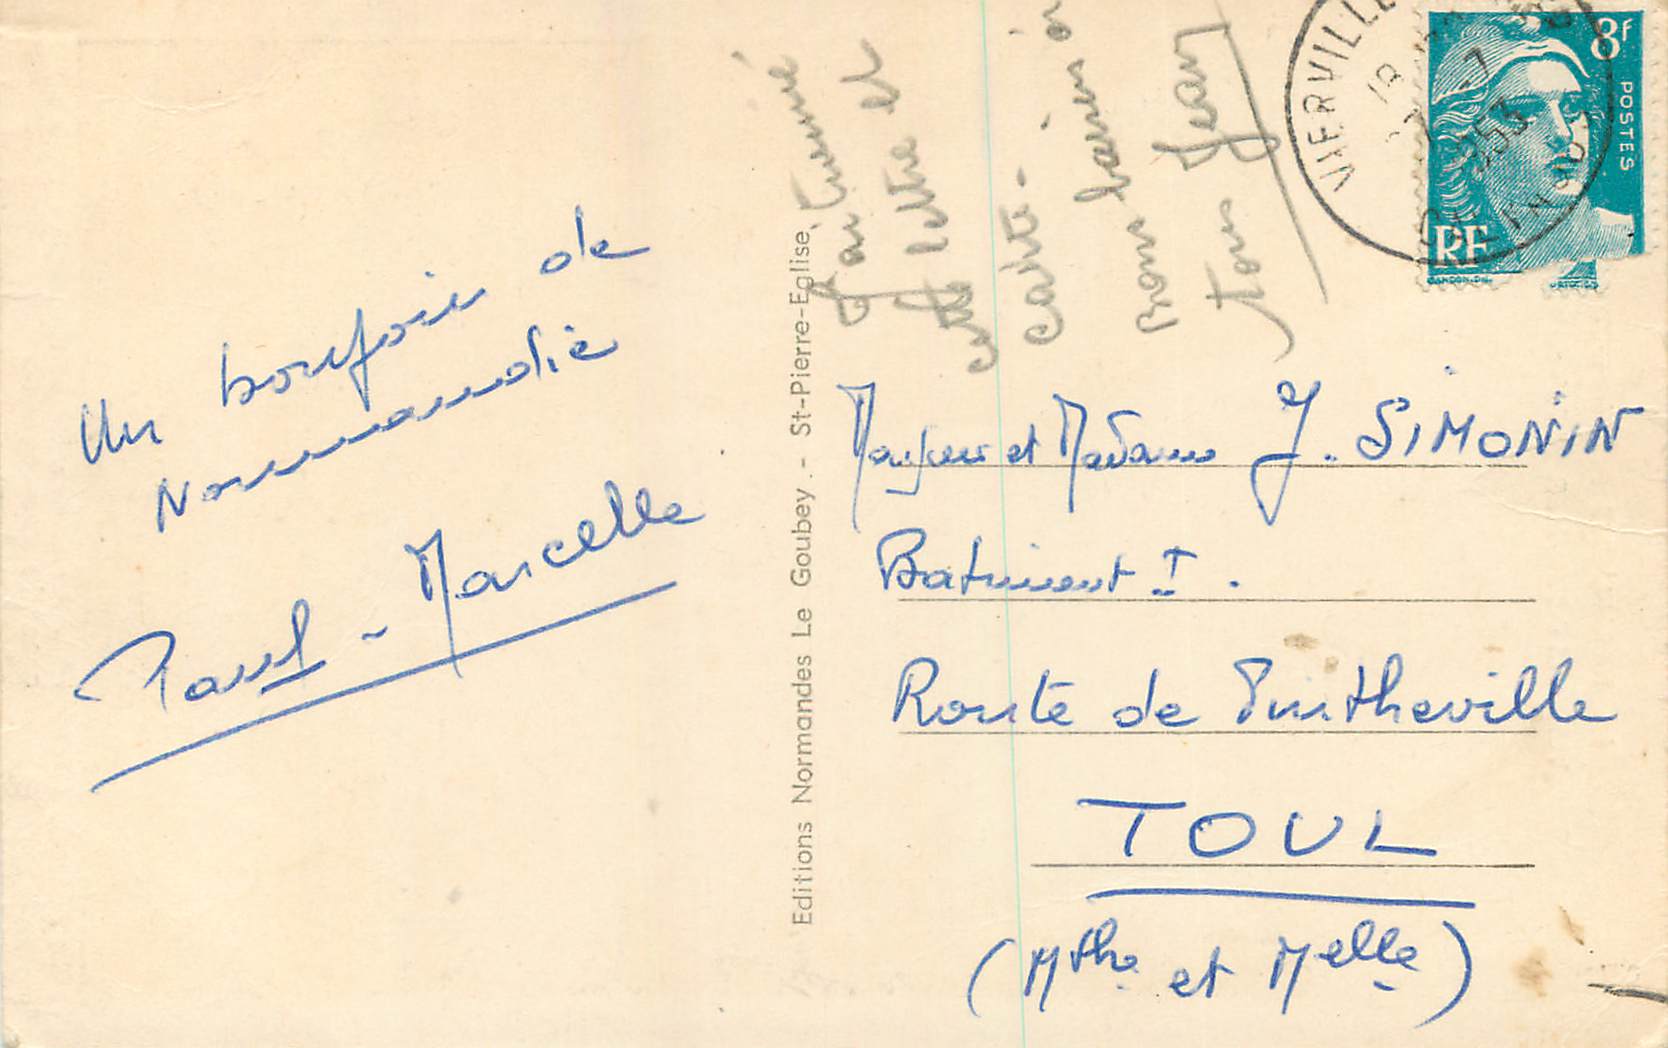 Un bonjour de
Normandie
Paul - Marcelle
Editions Normandes Le Goubey. - St-Pierre-Eglise
ta lettre et
carte -
bons baisers
ton Jean
VIERVILLE
18
7
1953
8f
POSTES
RF
Monsieur et Madame J. SIMONIN
Batiment I.
Route de
TOUL
(Mthe et Melle)